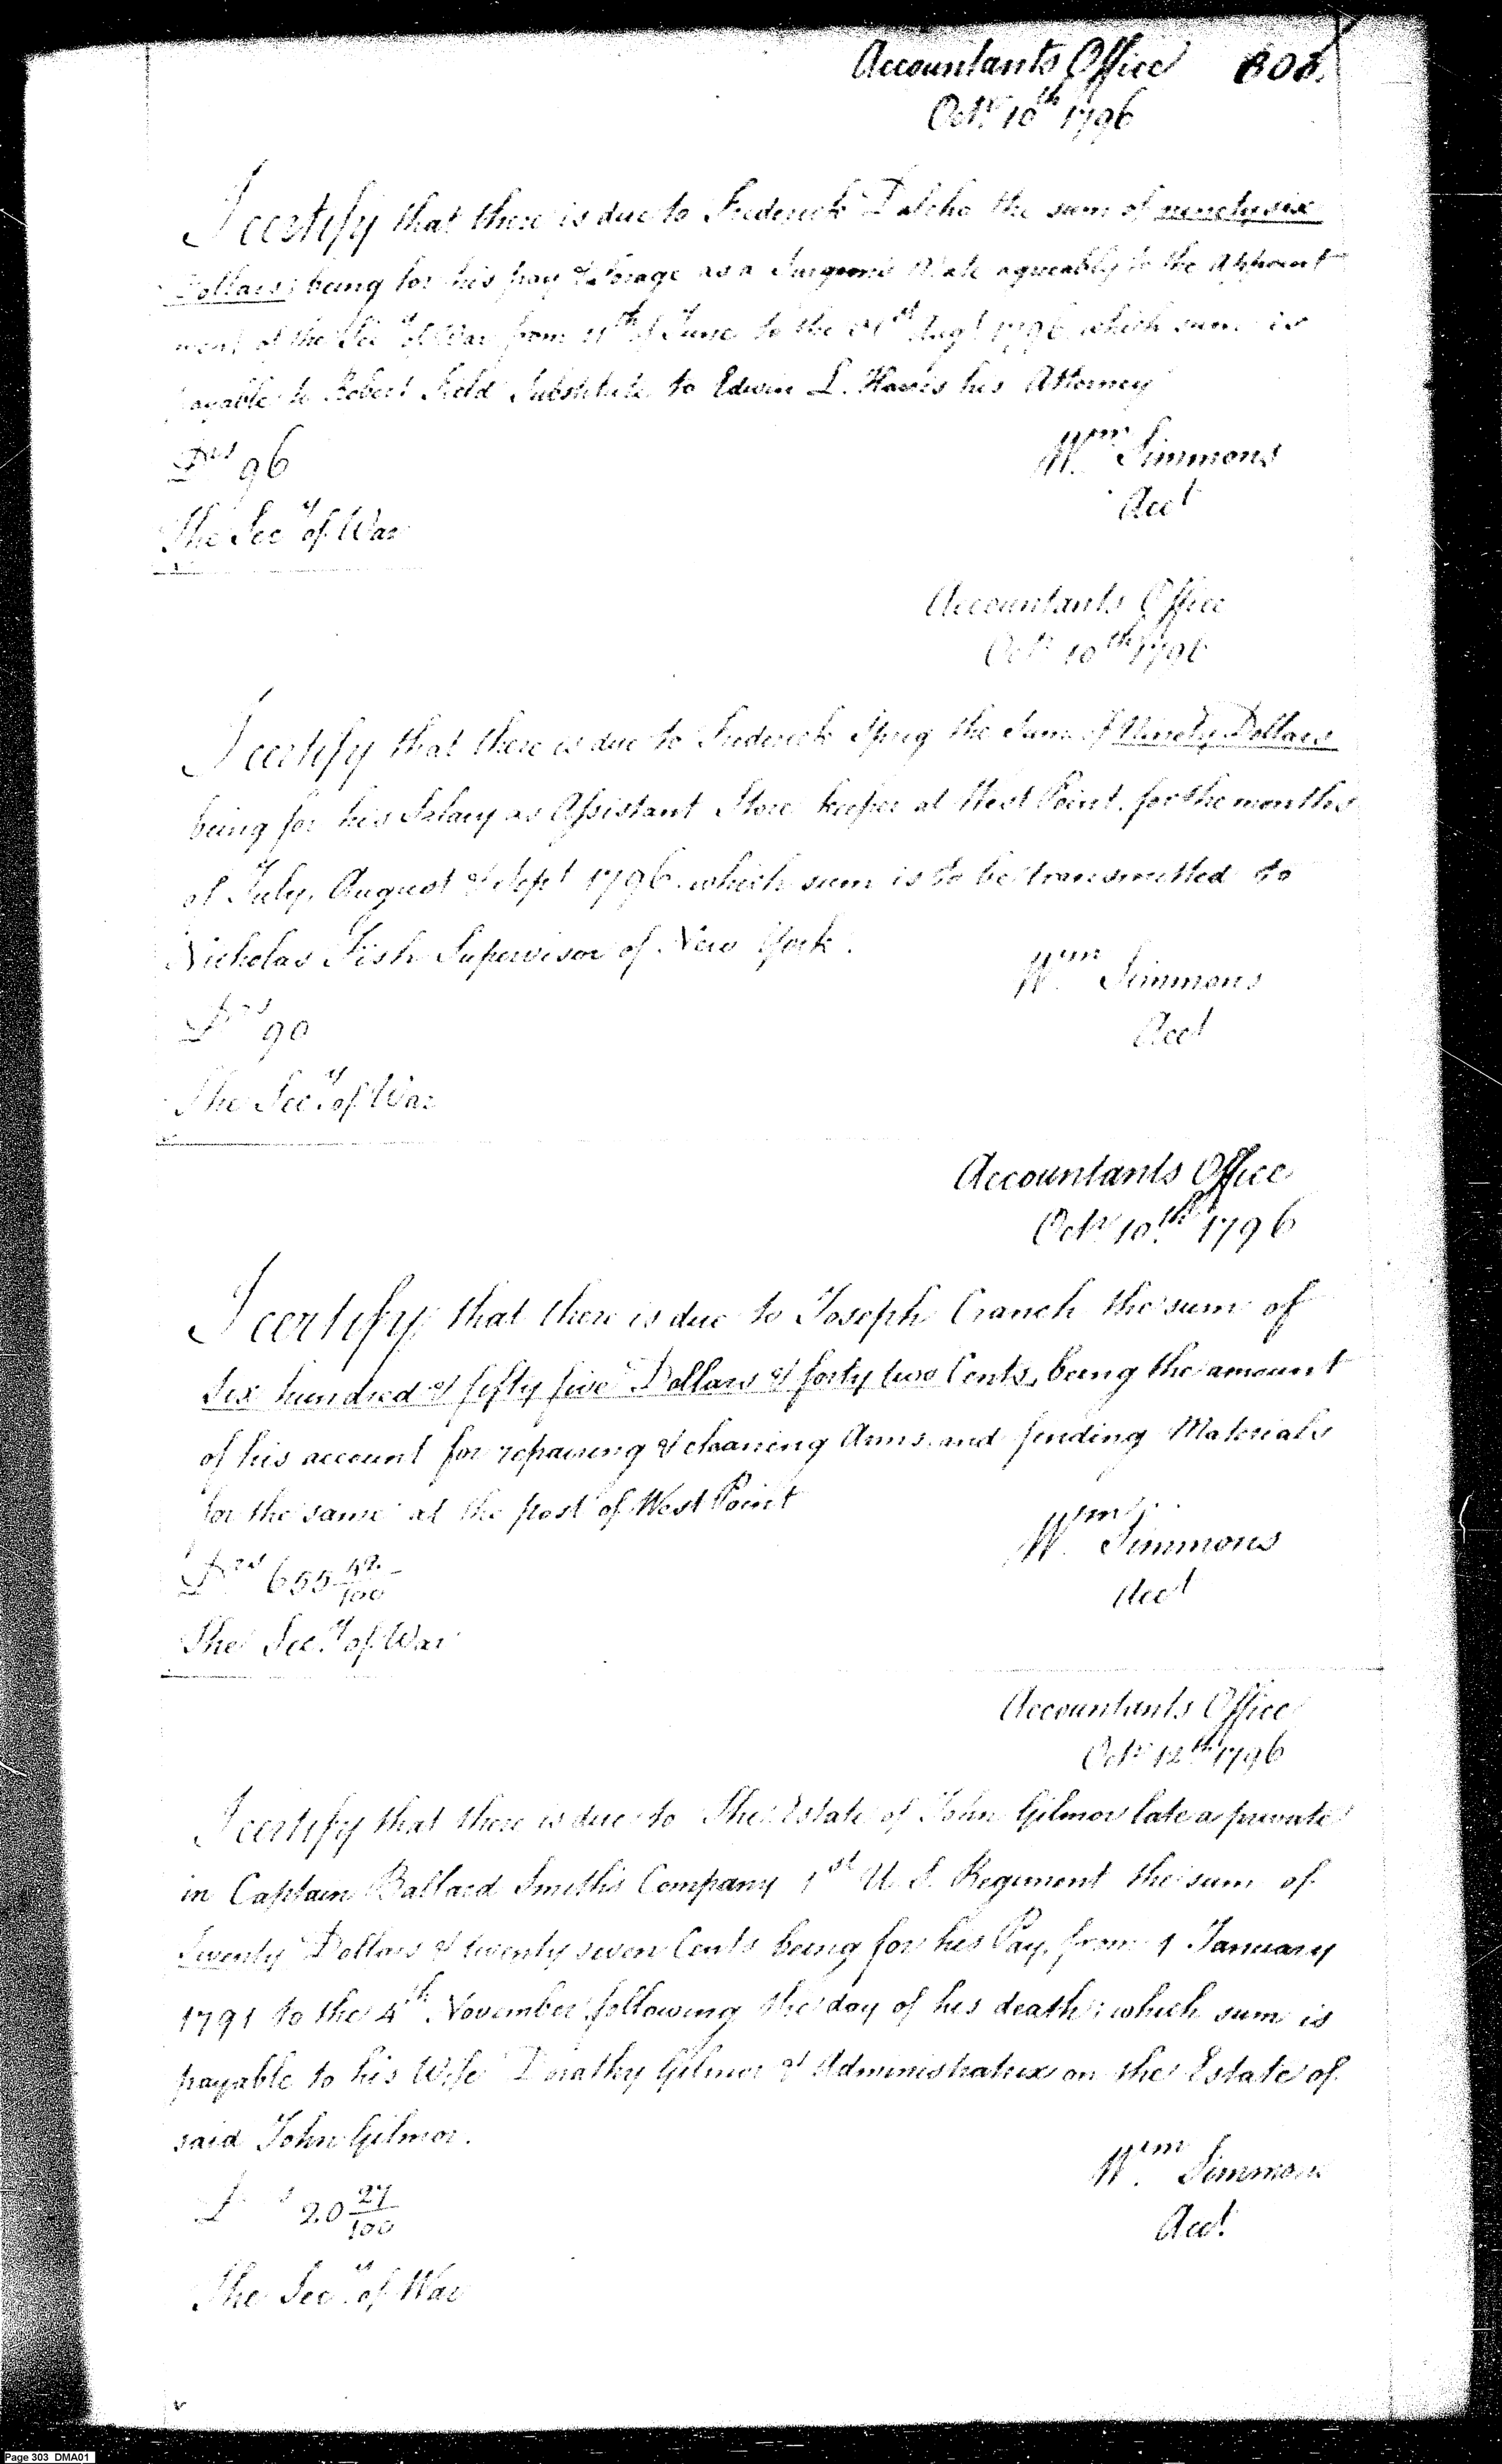 Accountants Office 303.
Octr. 10th 1796
I certify that there is due to Frederick Dalcho the sum of ninety six
Dollars; being for his pay & forage as a Surgeons Mate agreeably to the Appoint
ment of the Secy of War from 11th of June to the 31st Augt 1796 which sum is
payable to Robert Field Substitute to Edwin L. Harris his Attorney
Drs 96
Wm Simmons
Acct
The Secy of War
Accountants Office
Octr 10th 1796
I certify that there is due to Frederick Spreg the Sum of Ninety Dollars
being for his Salary as Assistant Store keeper at West Point, for the months
of July, August & Sept 1796. which sum is to be transmitted to
Nicholas Fish Supervisor of New York.
Wm Simmons
Drs 90
Acct
The Secy. of War
Accountants Office
Octr 10th 1796
I certify that there is due to Joseph Cranch the sum of
Six hundred & fifty five Dollars & forty two Cents, being the amount
of his account for repairing & cleaning Arms, and finding Materials
for the same at the post of West Point
Wm Simmons
Drs 655 42/100
Acct
The Secy. of War
Accountants Office
Octr 12th 1796
I certify that there is due to The Estate of John Gilmor late a private
in Captain Ballard Smith's Company 1st U. S. Regiment the sum of
Twenty Dollars & twenty seven Cents being for his Pay, from 1 January
1791 to the 4th November following the day of his death; which sum is
payable to his Wife Dorathy Gilmor & Administratrix on the Estate of
said John Gilmor.
Wm Simmons
20 27/100
Acct.
The Secy. of War
Page 303 DMA01